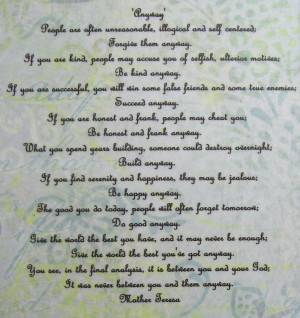 'Anyway'
People are often unreasonable, illogical and self centered;
Forgive them anyway.
If you are kind, people may accuse you of selfish, ulterior motives;
Be kind anyway.
If you are successful, you will win some false friends and some true enemies;
Succeed anyway.
If you are honest and frank, people may cheat you;
Be honest and frank anyway.
What you spend years building, someone could destroy overnight;
Build anyway.
If you find serenity and happiness, they may be jealous;
Be happy anyway.
The good you do today, people will often forget tomorrow;
Do good anyway.
Give the world the best you have, and it may never be enough;
Give the world the best you've got anyway.
You see, in the final analysis, it is between you and your God;
It was never between you and them anyway.
Mother Teresa